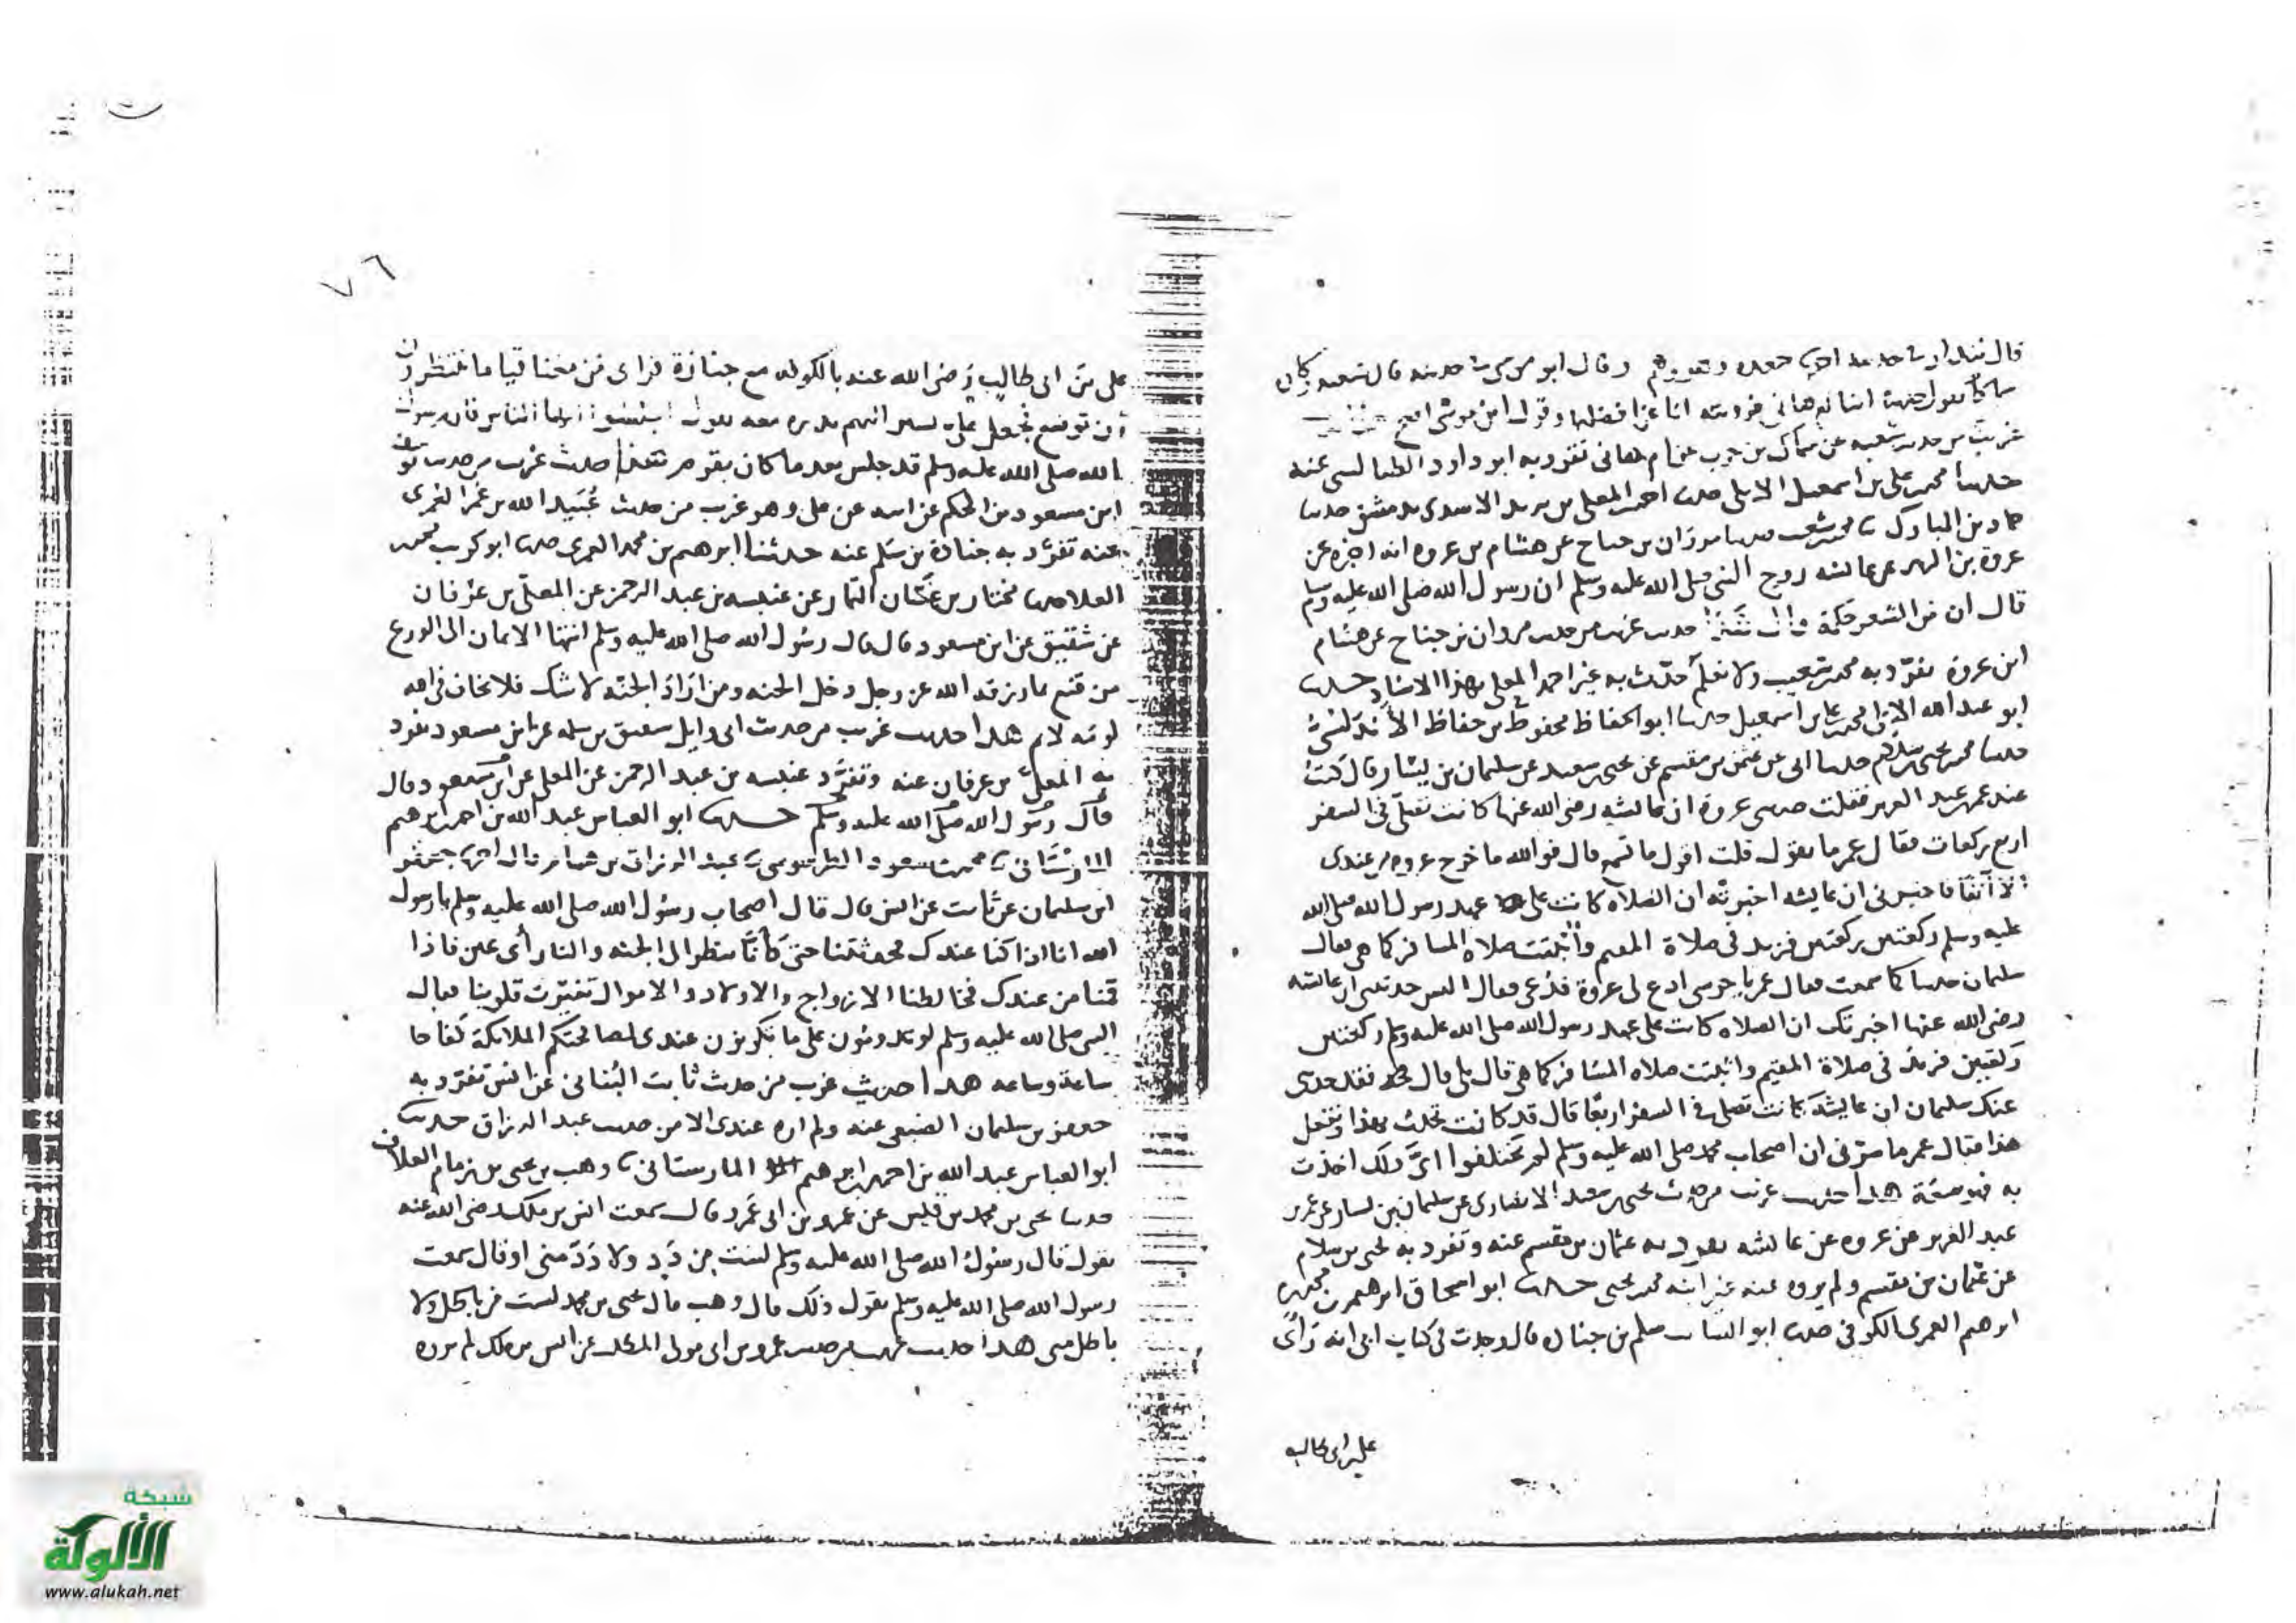 قال بندار حديثه وقال ابو موسى في حديثه قال شعبة كان
سماك يقول حدثنا ابنا ام هاني فرويته انا عن افضلهما وقول ابن موشى اصح
غريب من حديث شعبة عن سماك بن حرب عن ام هاني تفرد به ابو داود الطيالسي عنه
حدثنا محمد بن علي بن اسمعيل الايلي حدثنا احمد بن المعلى بن يزيد الاسدي بدمشق حدثنا
حماد بن المبارك محمد بن شعيب حدثنا مروان بن جناح عن هشام بن عروة انه اخبره عن
عروة بن الزبير عن عائشة زوج النبي صلى الله عليه وسلم ان رسول الله صلى الله عليه وسلم
قال ان من الشعر حكمة حديث غريب من حديث مروان بن جناح عن هشام
ابن عروة تفرد به محمد بن شعيب ولا نعلم حدث به غير احمد بن المعلى بهذا الاسناد حدثنا
ابو عبد الله الايلي محمد بن علي بن اسمعيل حدثنا ابو الحفاظ محفوظ بن حفاظ الاندلسي
حدثنا محمد بن يحيى بن سلام حدثنا ابي عن عثمن بن مقسم عن يحيى بن سعيد عن سليمان بن يسار قال كنت
عند عمر بن عبد العزيز فقلت حدثني عروة ان عائشة رضي الله عنها كانت تصلي في السفر
اربع ركعات فقال عمر ما تقول قلت اقول ما تسمع قال فوالله ما خرج عروة من عندي
الا آنفا فاخبرني ان عايشه اخبرته ان الصلاة كانت على عهد رسول الله صلى الله
عليه وسلم ركعتين ركعتين فزيد في صلاة المقيم واثبتت صلاة المسافر كما هي فقال
سليمان حدثنا كما سمعت فقال عمر يا حرسي ادع لي عروة فدعي فقال اليس حدثتني ان عائشة
رضي الله عنها اخبرتك ان الصلاة كانت على عهد رسول الله صلى الله عليه وسلم ركعتين
ركعتين فزيد في صلاة المقيم واثبتت صلاة المسافر كما هي قال بلى قال فقد حدثني
عنك سليمان ان عايشة كانت تصلي في السفر اربعا قال قد كانت تحدث بهذا وتفعل
هذا فقال عمر ما سرني ان اصحاب محمد صلى الله عليه وسلم لم يختلفوا اي ذلك اخذت
به فهو سنة هذا حديث غريب من حديث يحيى بن سعيد الانصاري عن سليمان بن يسار عن عمر بن
عبد العزيز عن عروة عن عائشة تفرد به عثمان بن مقسم عنه وتفرد به يحيى بن سلام
عن عثمان بن مقسم ولم يروه عنه غير ابنه محمد بن يحيى حدثنا ابو اسحاق ابرهيم بن محمد بن
ابرهيم العمري الكوفي حدثنا ابو السائب سلم بن جنادة قال وجدت في كتاب ابي انه رأى
علي بن ابي طالب
٧٦
علي بن ابي طالب رضي الله عنه بالكوفة مع جنازة فراى من معنا قياما ينتظرون
ان توضع فجعل علي يشير اليهم بدره معه يقول اجلسوا ايها الناس فان رسول
الله صلى الله عليه وسلم قد جلس بعد ما كان يقوم حديث غريب من حديث يوسف
ابن مسعود بن الحكم عن ابيه عن علي وهو غريب من حديث عبيد الله بن عمر العمري
عنه تفرد به جنادة بن سلم عنه حدثنا ابرهيم بن محمد العمري حدثنا ابو كريب محمد بن
العلا حدثنا مختار بن غسان التمار عن عنبسه بن عبد الرحمن عن المعلى بن عرفان
عن شقيق عن ابن مسعود قال قال رسول الله صلى الله عليه وسلم انتها الايمان الى الورع
من قنع بما رزقه الله عز وجل دخل الجنه ومن اراد الجنه لا شك فلا يخاف في الله
لومة لائم هذا حديث غريب من حديث ابي وايل شقيق بن سلمه عن ابن مسعود تفرد
به المعلى بن عرفان عنه وتفرد عنبسه بن عبد الرحمن عن المعلى عن ابن مسعود قال
قال رسول الله صلى الله عليه وسلم حدثنا ابو العباس عبد الله بن احمد بن ابرهيم
المارستاني محمد بن مسعود الطرسوسي عبد الرزاق بن همام قال اخبرنا جعفر
ابن سليمان عن ثابت عن انس قال قال اصحاب رسول الله صلى الله عليه وسلم يا رسول
الله انا اذا كنا عندك فحدثتنا حتى كانا ننظر الى الجنه والنار رأى عين فاذا
قمنا من عندك فخالطنا الازواج والاولاد والاموال تغيرت قلوبنا فقال
النبي صلى الله عليه وسلم لو تدومون على ما تكونون عندي لصافحتكم الملائكة كفاحا
ساعة وساعه هذا حديث غريب من حديث ثابت البناني عن انس تفرد به
جعفر بن سليمان الضبعي عنه ولم اره عندي الا من حديث عبد الرزاق حدثنا
ابو العباس عبد الله بن احمد بن ابرهيم المارستاني وهب بن يحيى بن زمام العلاف
حدثنا يحيى بن محمد بن قيس عن عمرو بن ابي عمرو قال سمعت انس بن ملك رضي الله عنه
يقول قال رسول الله صلى الله عليه وسلم لست من دد ولا دد مني او قال سمعت
رسول الله صلى الله عليه وسلم يقول ذلك قال وهب قال يحيى بن محمد لست من باطل ولا
باطل مني هذا حديث غريب من حديث عمرو بن ابي مولى المطلب عن انس بن ملك لم يروه
شبكة
الألوكة
www.alukah.net